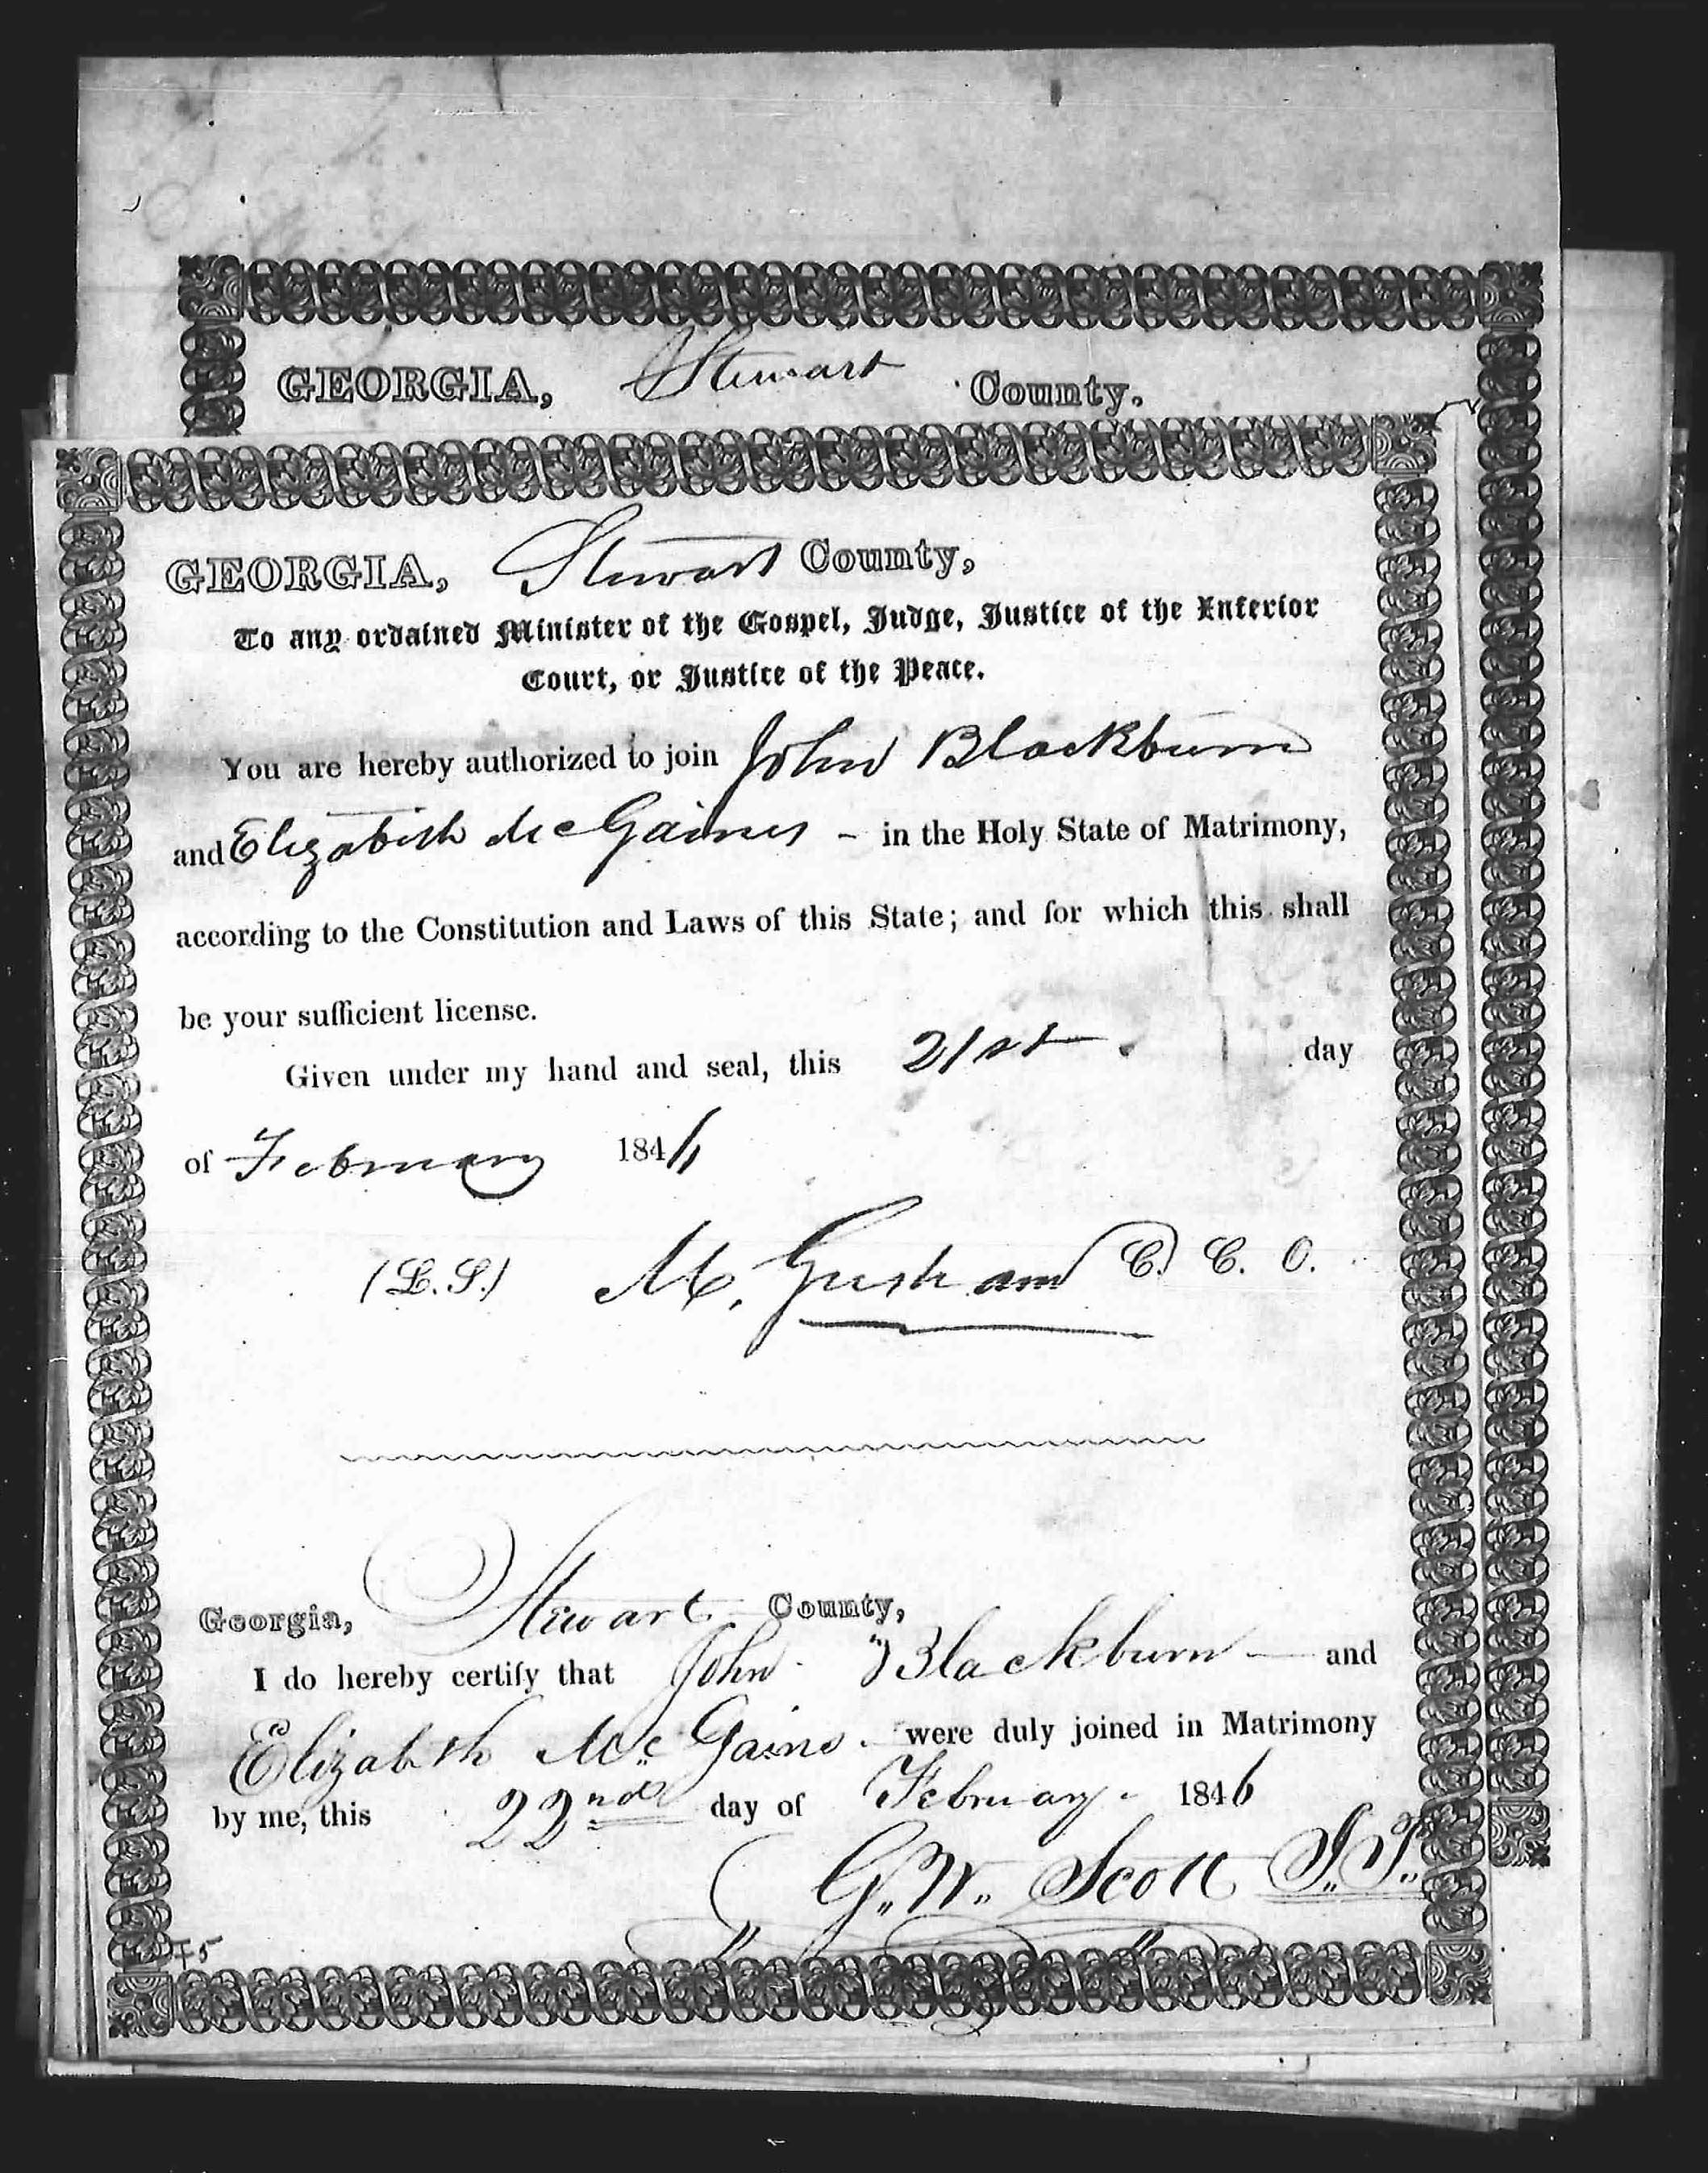 GEORGIA, Stewart County.
GEORGIA, Stewart County,
To any ordained Minister of the Gospel, Judge, Justice of the Inferior
Court, or Justice of the Peace.
You are hereby authorized to join John Blackburn
and Elizabeth McGaines - in the Holy State of Matrimony,
according to the Constitution and Laws of this State; and for which this shall
be your sufficient license.
Given under my hand and seal, this 21st. day
of February 1846
(L.S.) M. Gresham C. C. O.
Georgia, Stewart County,
I do hereby certify that John Blackburn — and
Elizabeth McGains. were duly joined in Matrimony
by me, this 22nd day of February. 1846
G. W. Scott J. P.